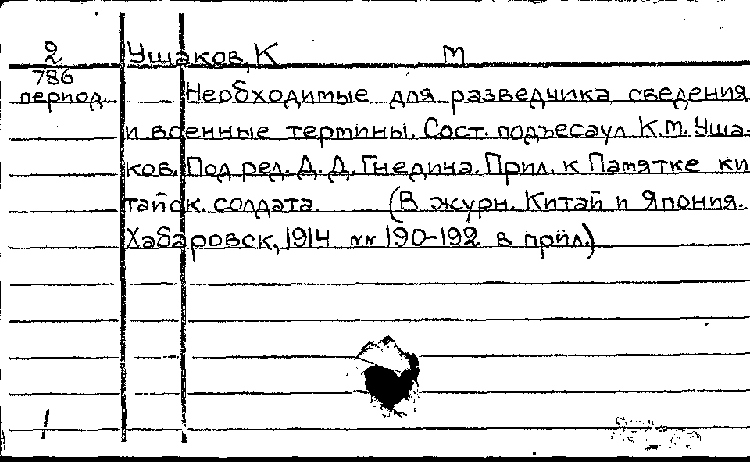 2 Ушаков, К М
786
период
Необходимые для разведчика сведения
и военные термины. Сост. подъесаул К.М. Уша-
ков. Под ред. Д. Д. Гнедича. Прил. к Памятке ки
тайск. солдата. (В журн. Китай и Япония.
Хабаровск, 1914 NN 190-192 в прил.)
1